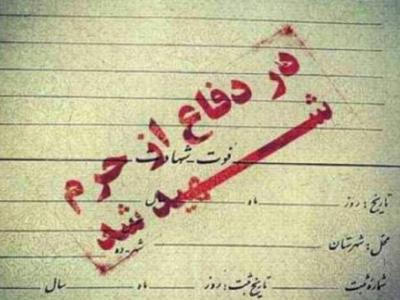 در دفاع از حرم
شهید شد
فوت شهادت
تاریخ: روز ماه سال
محل: شهرستان شهر ده
شماره ثبت تاریخ ثبت: روز ماه سال